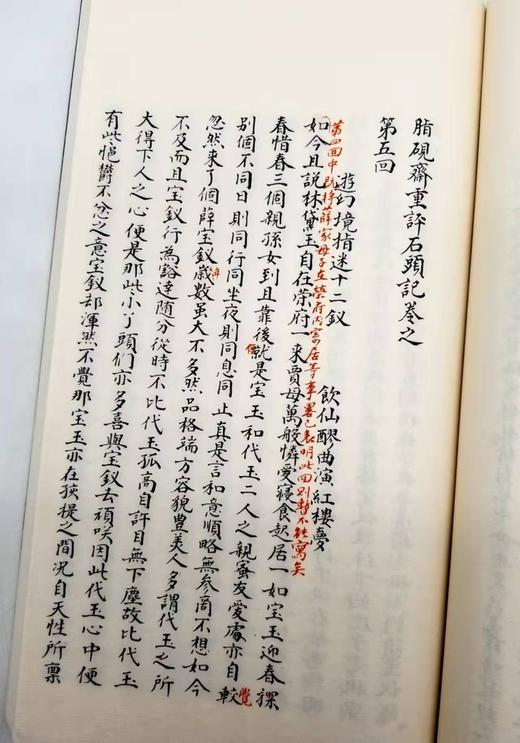 脂硯齋重評石頭記卷之
第五回
遊幻境指迷十二釵 飲仙醪曲演紅樓夢
第四回中既将薛家母子在榮府内寄居等事畧已表明此回則暫不能寫矣
如今且説林黛玉自在荣府一来賈母萬般憐愛寝食起居一如宝玉迎春探
春惜春三個親孫女到且靠後就是宝玉和代玉二人之親蜜友愛處亦自較
覺
別個不同日則同行同坐夜則同息同止真是言和意順略無參商不想如今
忽然来了個薛宝釵歳数雖大不多然品格端方容貌豊美人多謂代玉之所
不及而且宝釵行為豁達随分從時不比代玉孤高自許目無下塵故比代玉
大得下人之心便是那些小丫頭們亦多喜與宝釵去頑咲因此代玉心中便
有些悒鬱不忿之意宝釵却渾然不覺那宝玉亦在孩提之間况自天性所禀